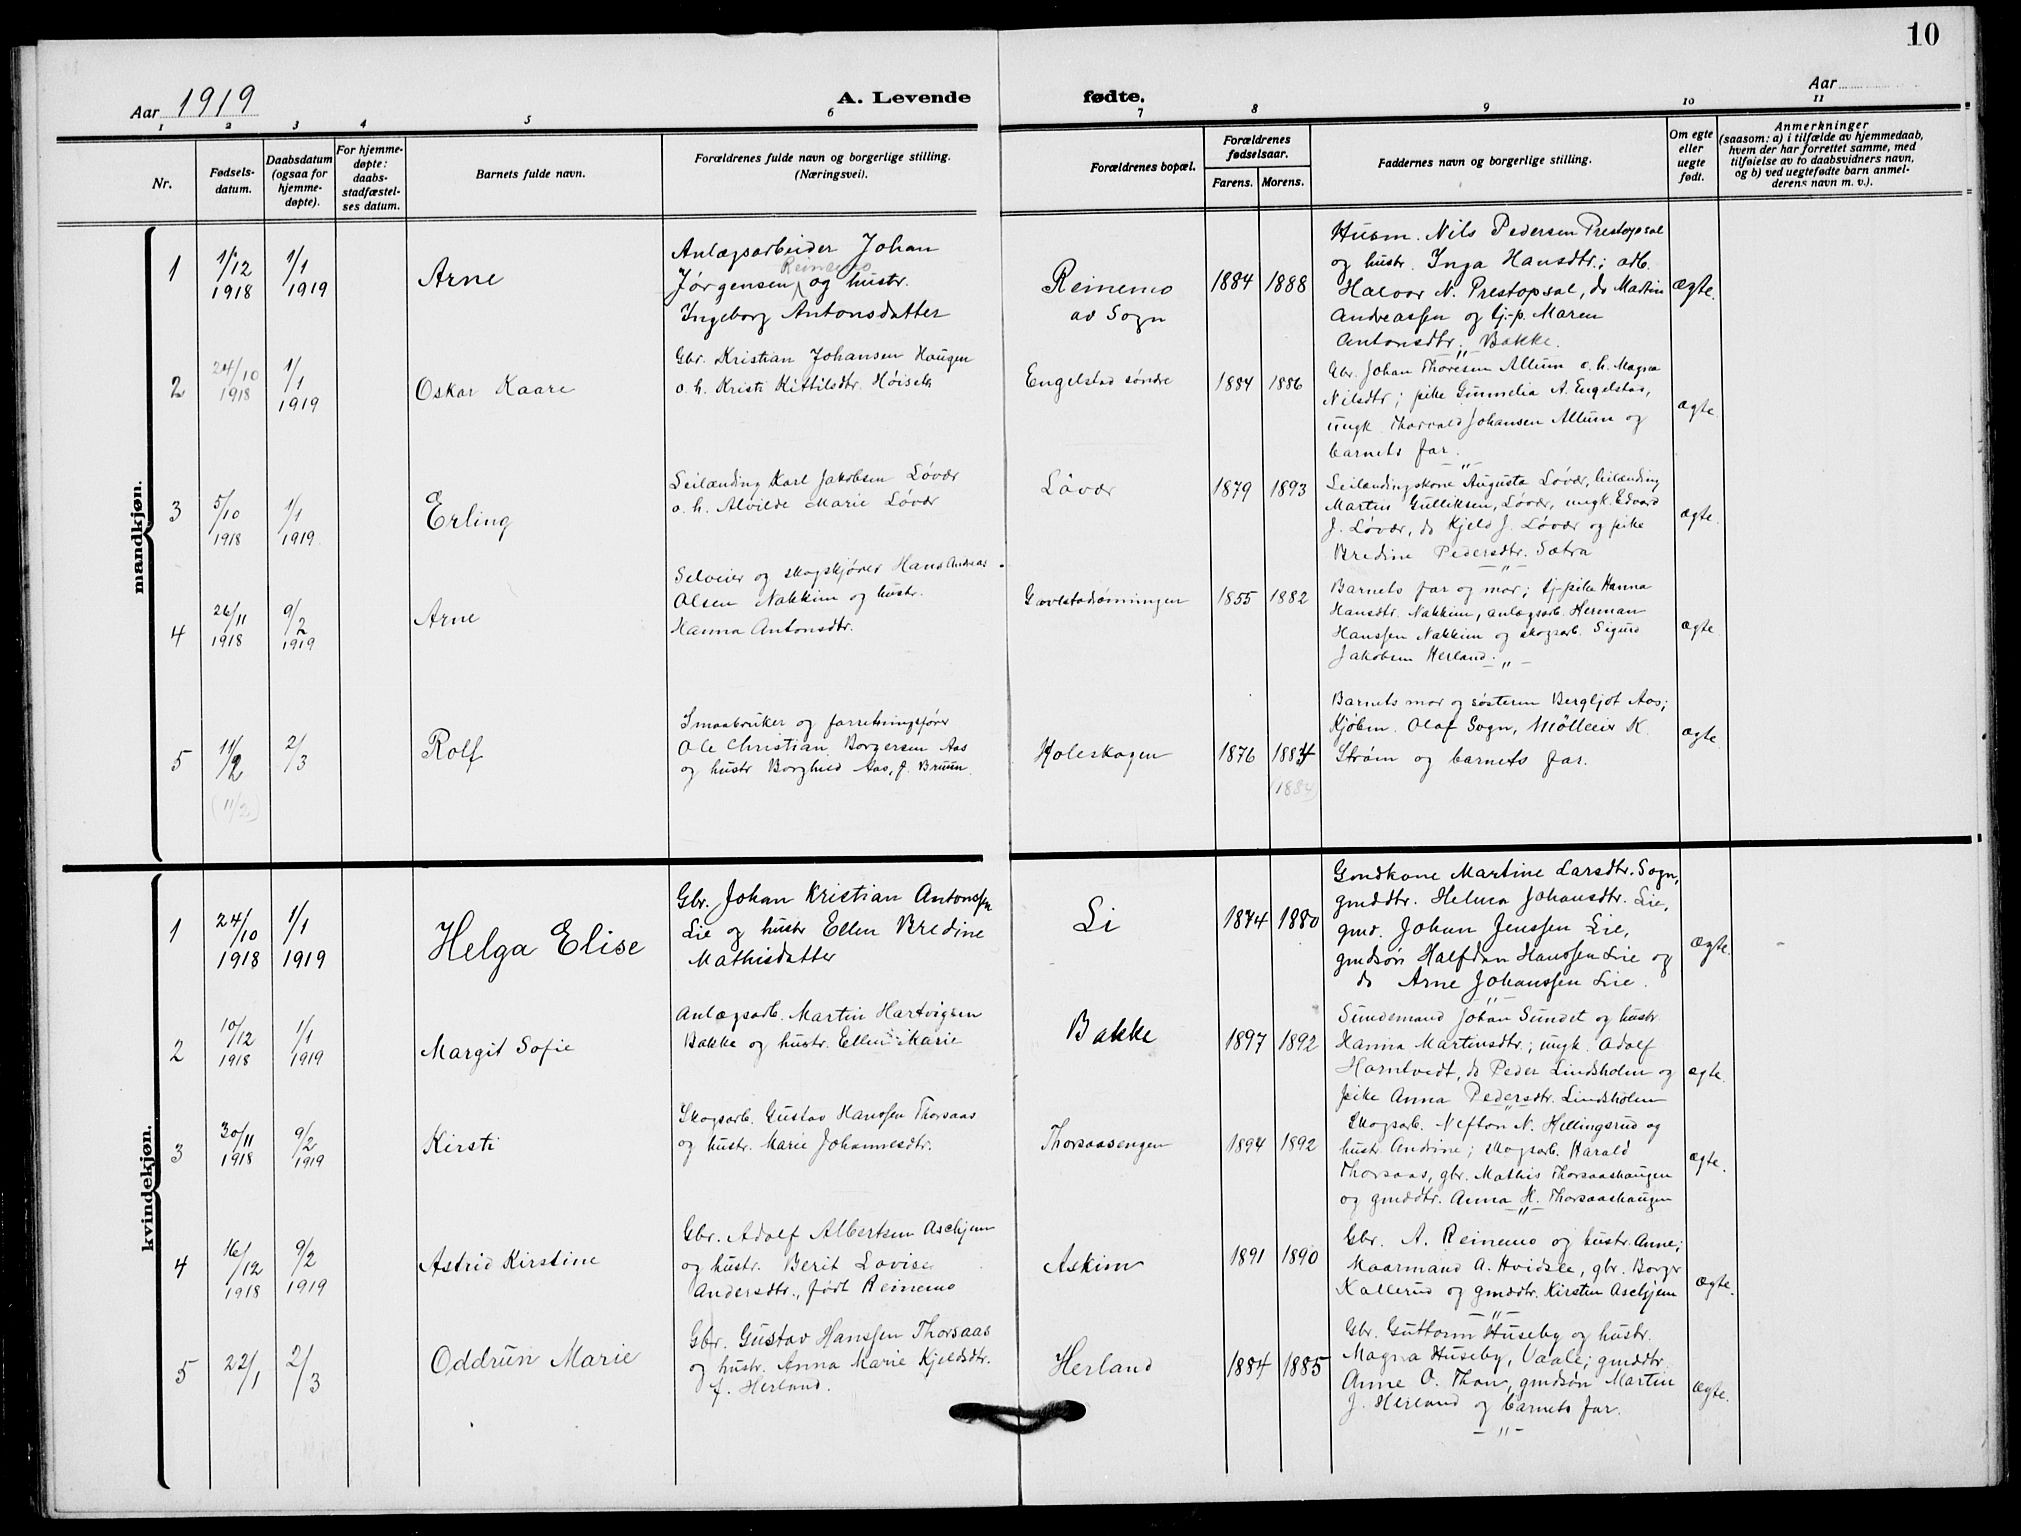 10
Aar 1919
A. Levende fødte.
Aar
1 2 3 4 5 6 7 8 9 10 11
Nr.
Fødsels-
datum.
Daabsdatum
(ogsaa for
hjemme-
døpte).
For hjemme-
døpte:
daabs-
stadfæstel-
ses datum.
Barnets fulde navn.
Forældrenes fulde navn og borgerlige stilling.
(Næringsvei).
Forældrenes bopæl.
Forældrenes
fødselsaar.
Farens. Morens.
Faddernes navn og borgerlige stilling.
Om egte
eller
uegte
født.
Anmerkninger
(saasom: a) i tilfælde av hjemmedaab,
hvem der har forrettet samme, med
tilføielse av to daabsvidners navn,
og b) ved uegtefødte barn anmel-
derens navn m. v.).
mandkjøn.
1
1/12
1918
1/1
1919
Arne
Anlægsarbeider Johan
Reinemo
Jørgensen og hustr.
Ingeborg Antonsdatter
Reinemo
av Sogn
1884 1888
Husm. Nils Pedersen Prestopsal
og hustr. Inga Hansdtr.; arb.
Halvor N. Prestopsal, do Martin
Andreassen og tj.-p. Maren
Antonsdtr. Bakke.
ægte.
2
24/10
1918
1/1
1919
Oskar Kaare
Gbr. Kristian Johansen Haugen
o. h. Kristi Kittilsdtr. Høiseth
Engelstad søndre
1884 1886
Gbr. Johan Thoresen Allum o. h. Magna
Nilsdtr; pike Gunnelia A. Engelstad,
ungk. Thorvald Johansen Allum og
barnets far.
ægte
3
5/10
1918
1/1
1919.
Erling
Leilænding Karl Jakobsen Løvær
o. h. Alvilde Marie Løvær
Løvær
1879 1893
Leilændingskone Augusta Løvær, leilænding
Martin Gulliksen, Løvær, ungk. Edvard
J. Løvær, do Kjeld J. Løvær og pike
Bredine Pedersdtr. Sætra
ægte.
4
26/11
1918
9/2
1919
Arne
Selveier og skogskjører Hans Andreas
Olsen Nakkim og hustr.
Hanna Antonsdtr.
1855 1882
Barnets far og mor; tj.pike Hanna
Hansdtr. Nakkim, anlægsarb. Herman
Hanssen Nakkim og skogsarb. Sigurd
Jakobsen Herland.
ægte
5
11/2
(11/2)
2/3
Rolf
Smaabruker og forretningsfører
Ole Christian Borgersen Aas
og hustr Borghild Aas, f. Bruun.
Holeskogen
1876 1884
(1884)
Barnets mor og søsteren Bergljot Aas;
Kjøbm. Olaf Sogn, Mølleier K.
Strøm og barnets far.
ægte.
kvindekjøn.
1
24/10
1918
1/1
1919
Helga Elise
Gbr. Johan Kristian Antonssen
Lie og hustr Ellen Bredine
Mathisdatter
Li
1874 1880
Gmdkone Martine Larsdtr. Sogn,
gmddtr. Helma Johansdtr. Lie,
gmd. Johan Jenssen Lie,
gmdsøn Halfdan Hanssen Lie og
do Arne Johanssen Lie.
ægte.
2
10/12
1918
1/1
1919
Margit Sofie
Anlægsarb. Martin Hartvigsen
Bakke og hustr. Ellen Marie
Bakke
1897 1892
Sundemand Johan Sundet og hustr
Hanna Martinsdtr.; ungk. Adolf
Horntvedt, do Peder Lindsholm og
pike Anna Pedersdtr. Lindsholm
ægte.
3
30/11
1918
9/2
1919
Kirsti
Skogsarb. Gustav Hanssen Thorsaas
og hustr. Marie Johannesdtr.
Thorsaasengen
1894 1892
Skogsarb. Nefton N. Hellingsrud og
hustr Andrine; skogsarb. Harald
Thorsaas, gbr. Mathis Thorsaashaugen
og gmddtr. Anna H. Thorsaashaugen
ægte.
4
16/12
1918
9/2
1919
Astrid Kirstine
Gbr. Adolf Albertsen Aschjem
og hustr. Berit Lovise
Andersdtr., født Reinemo
Askim
1891 1890
Gbr. A. Reinemo og hustr. Anne;
Maarmand A. Hvidsle, gbr. Borger
Kallerud og gmddtr. Kirsten Aschjem
ægte.
5
22/1
2/3
Oddrun Marie
Gbr. Gustav Hanssen Thorsaas
og hustr. Anna Marie Kjeldsdtr.
f. Herland.
Herland
1884 1885
Gbr. Guttorm Huseby og hustr.
Magna Huseby, Vaale; gmddtr.
Anne O. Thon, gmdsøn Martin
J. Herland og barnets far.
ægte.